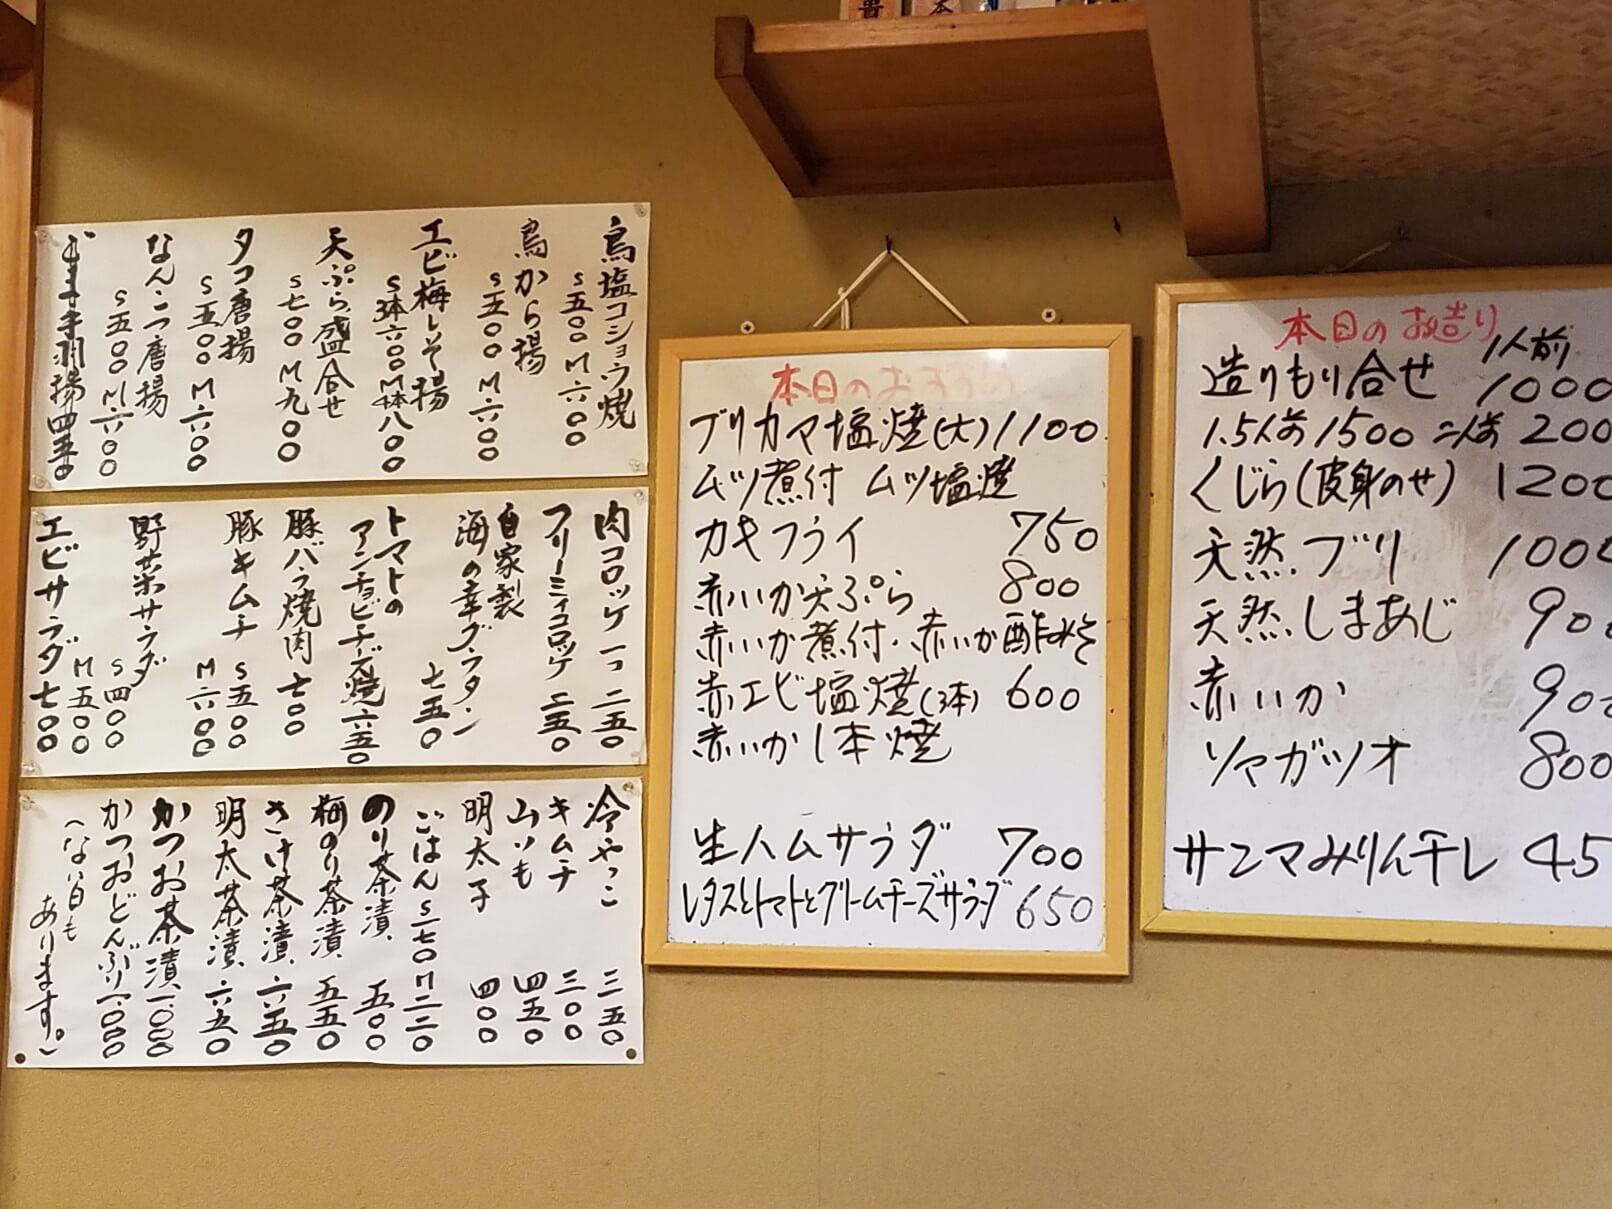 鳥塩コショウ焼
S五〇〇 M六〇〇
鳥から揚
S五〇〇 M六〇〇
エビ梅しそ揚
S3本六〇〇M4本八〇〇
天ぷら盛合せ
S七〇〇 M九〇〇
タコ唐揚
S五〇〇 M六〇〇
なんこつ唐揚
S五〇〇 M六〇〇
手羽揚 四五〇
肉コロッケ 一コ 二五〇
クリーミィコロッケ 二五〇
自家製
海の幸グラタン
七五〇
トマトの
アンチョビチーズ焼 六五〇
豚バラ焼肉 七〇〇
豚キムチ S五〇〇
M六〇〇
野菜サラダ
S四〇〇
M五〇〇
エビサラダ 七〇〇
冷やっこ 三五〇
キムチ 三〇〇
山いも 四五〇
明太子 四〇〇
ごはん S一七〇 M二二〇
のり茶漬 五〇〇
梅のり茶漬 五五〇
さけ茶漬 六五〇
明太茶漬 六五〇
かつお茶漬 1.000
かつおどんぶり 1.000
(ない日も
あります。)
本日のおすすめ
ブリカマ塩焼(大) 1100
ムツ煮付 ムツ塩焼
カキフライ 750
赤いか天ぷら 800
赤いか煮付・赤いか酢みそ
赤エビ塩焼(3本) 600
赤いか1本焼
生ハムサラダ 700
レタスとトマトとクリームチーズサラダ 650
本日のお造り
1人前
造りもり合せ 1000
1.5人前 1500 二人前 200
くじら(皮身のせ) 1200
天然ブリ 1000
天然しまあじ 900
赤いか 900
ソマガツオ 800
サンマみりん干し 45